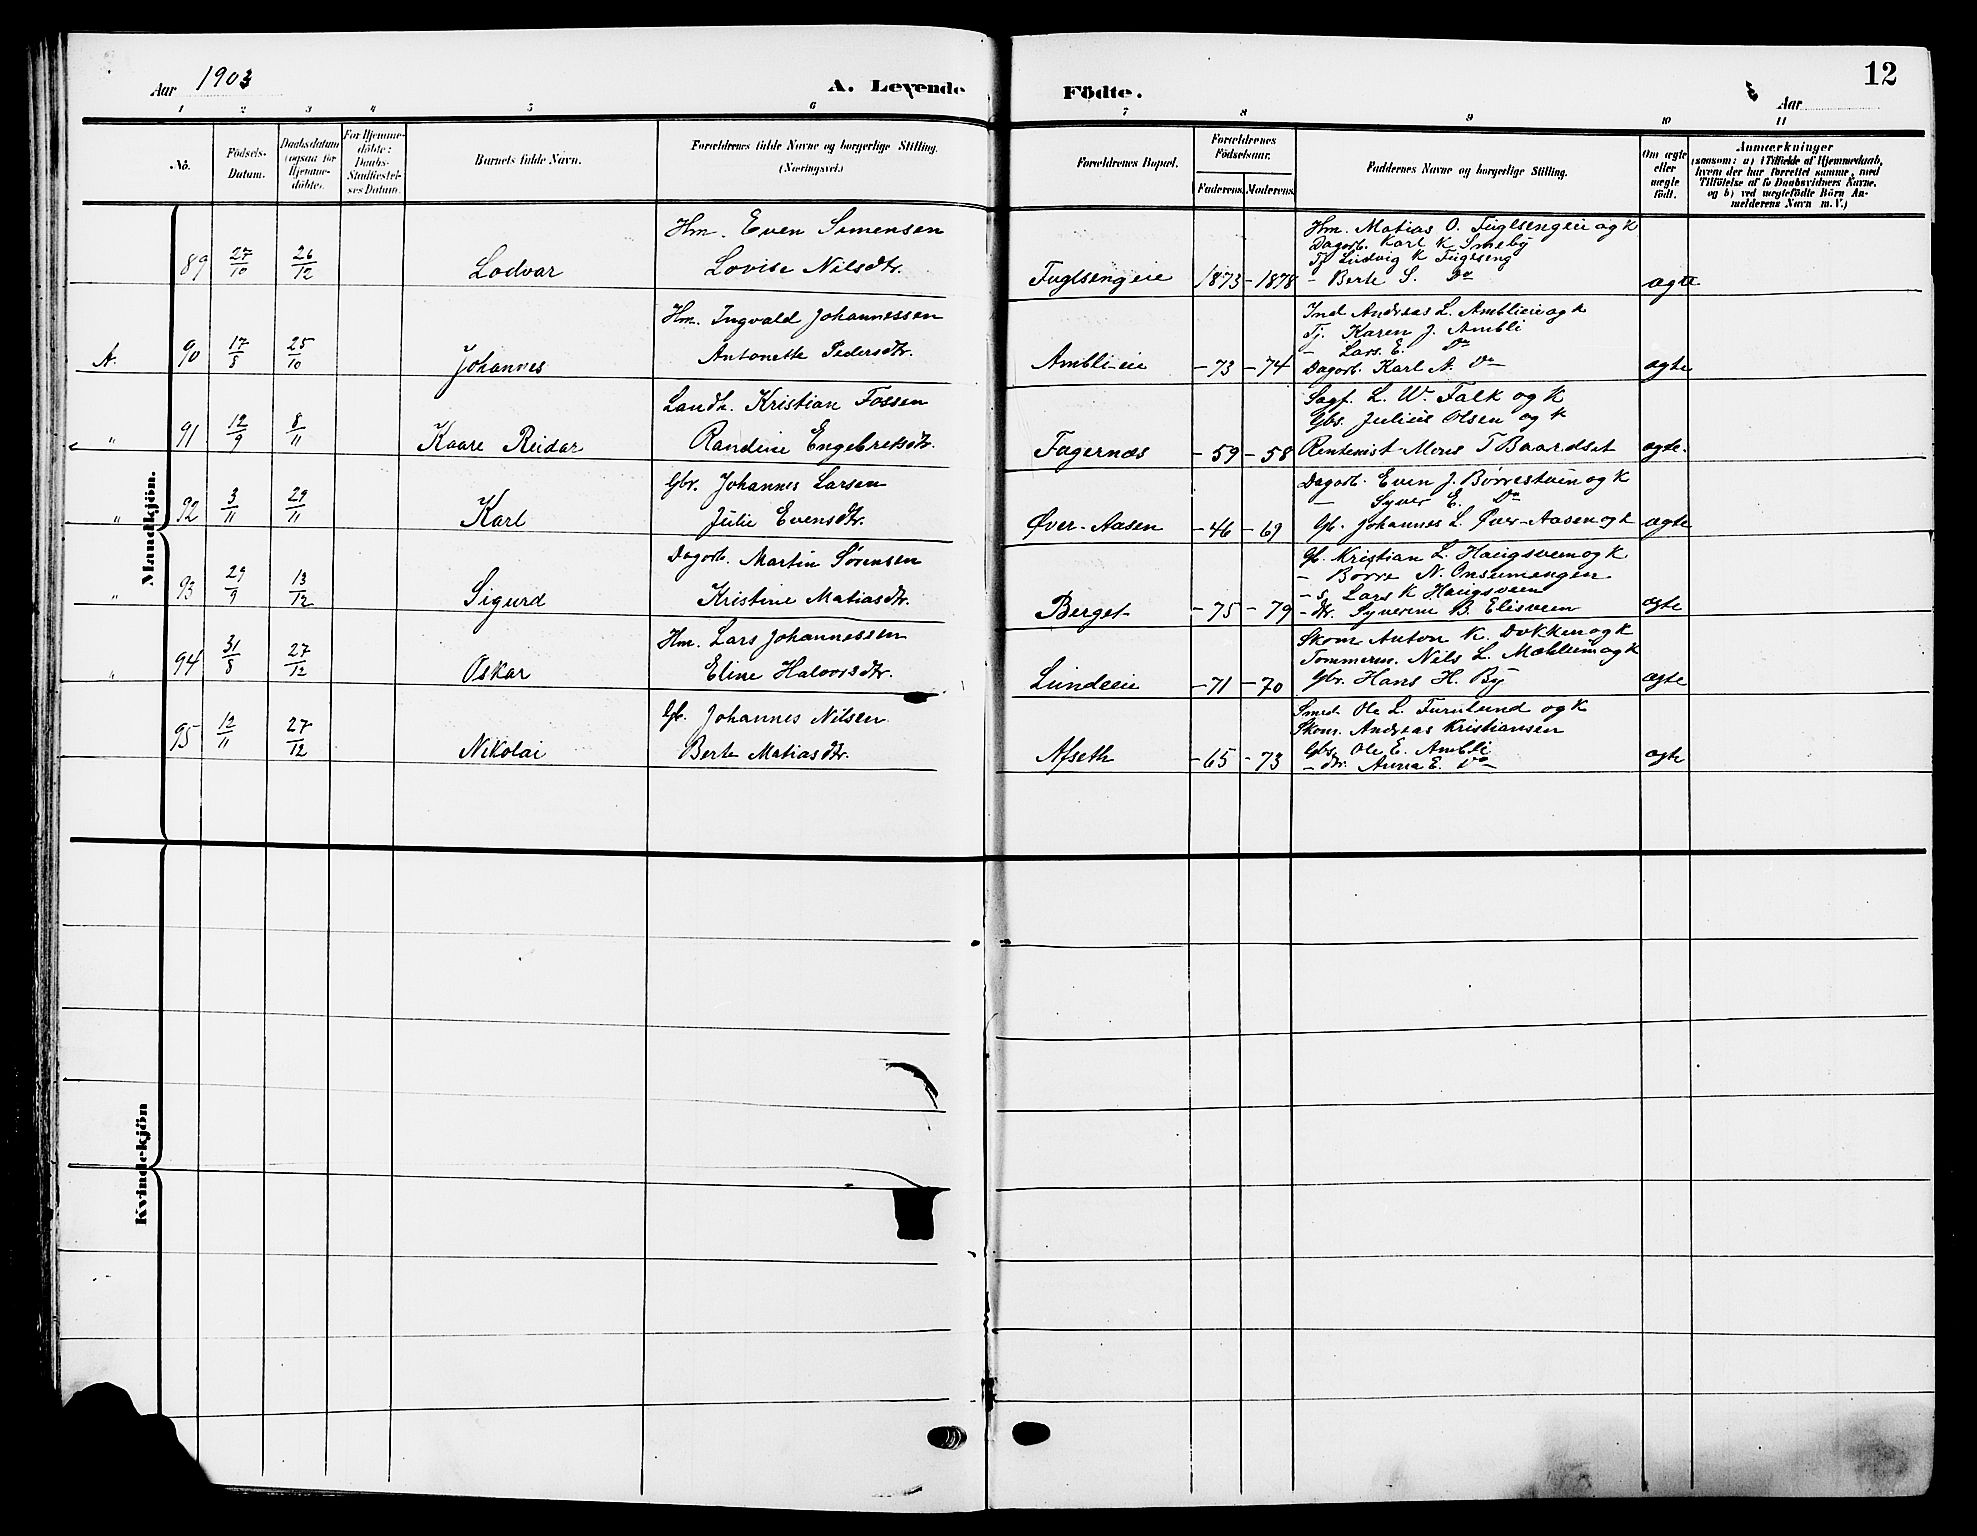 Aar 1903
A. Levende Födte.
Aar
12
1 2 3 4 5 6 7 8 9 10 11
No.
Födsels-Datum.
Daabsdatum (ogsaa for Hjemme-döbte).
For Hjemme-döbte: Daabs-Stadfæstel-ses Datum.
Barnets fulde Navn.
Forældrenes fulde Navne og borgerlige Stilling. (Næringsvei.)
Forældrenes Bopæl.
Forældrenes Födselsaar.
Faderens. Moderens.
Faddernes Navne og borgerlige Stilling.
Om ægte eller uægte födt.
Anmærkninger
(saasom: a) i Tilfælde af Hjemmedaab, hvem der har forrettet samme, med Tilföielse af to Daabsvidners Navne, og b) ved uægtefödte Börn Anmelderens Navn m. V.)
Mandkjön.
89 27/10 26/12 Lodvar
Hm. Even Simensen
Lovise Nilsdtr.
Fuglsengeie 1873 - 1878
Hm. Matias O. Fuglsengeie og k
Dagarb. Karl K Smeby
Tj Ludvig K Fuglseng
- Berte S. Do
ægte
A. 90 17/8 25/10 Johannes
Hm. Ingvald Johannessen
Antonette Pedersdtr.
Amblieie - 73 - 74
Ind Andreas L. Amblieie og k
Tj. Karen J. Ambli
- Lars. E. Do
Dagarb. Karl A. Do
ægte
" 91 12/9 8/11 Kaare Reidar
Landh. Kristian Fossen
Randine Engebretsdtr.
Fagernæs - 59 - 58
Sagf. L. W. Falk og k
Gbs. Julius Olsen og k
Rentenist Mons T Baardset
ægte.
" 92 3/11 29/11 Karl
Gbr. Johannes Larsen
Julie Evensdtr.
Øver-Aasen - 46 - 69
Dagarb. Even J. Børrestuen og k
- Syver E. Do
Gb. Johannes L. Øver-Aasen og k
ægte
" 93 29/9 13/12 Sigurd
Dagarb. Martin Sørensen
Kristine Matiasdtr.
Berget - 75 - 79
Gb. Kristian L. Haugsveen og k
- Børre N. Onsumengen
- s. Lars K Haugsveen
- dtr. Syverine B. Elisveen
ægte
" 94 31/8 27/12 Oskar
Hm. Lars Johannessen
Eline Halvorsdtr.
Lundeeie - 71 - 70
Skom Anton K. Dokken og k
Tømmerm. Nils L. Mæhlum og k
Gbr. Hans H. By
ægte
95 12/11 27/12 Nikolai
Gb. Johannes Nilsen
Berte Matiasdtr.
Afseth - 65 - 73
Smed Ole L. Furulund og k
Skom. Andreas Kristiansen
Gbs. Ole E. Ambli
- dtr. Anna E. Do
ægte
Kvindekjön